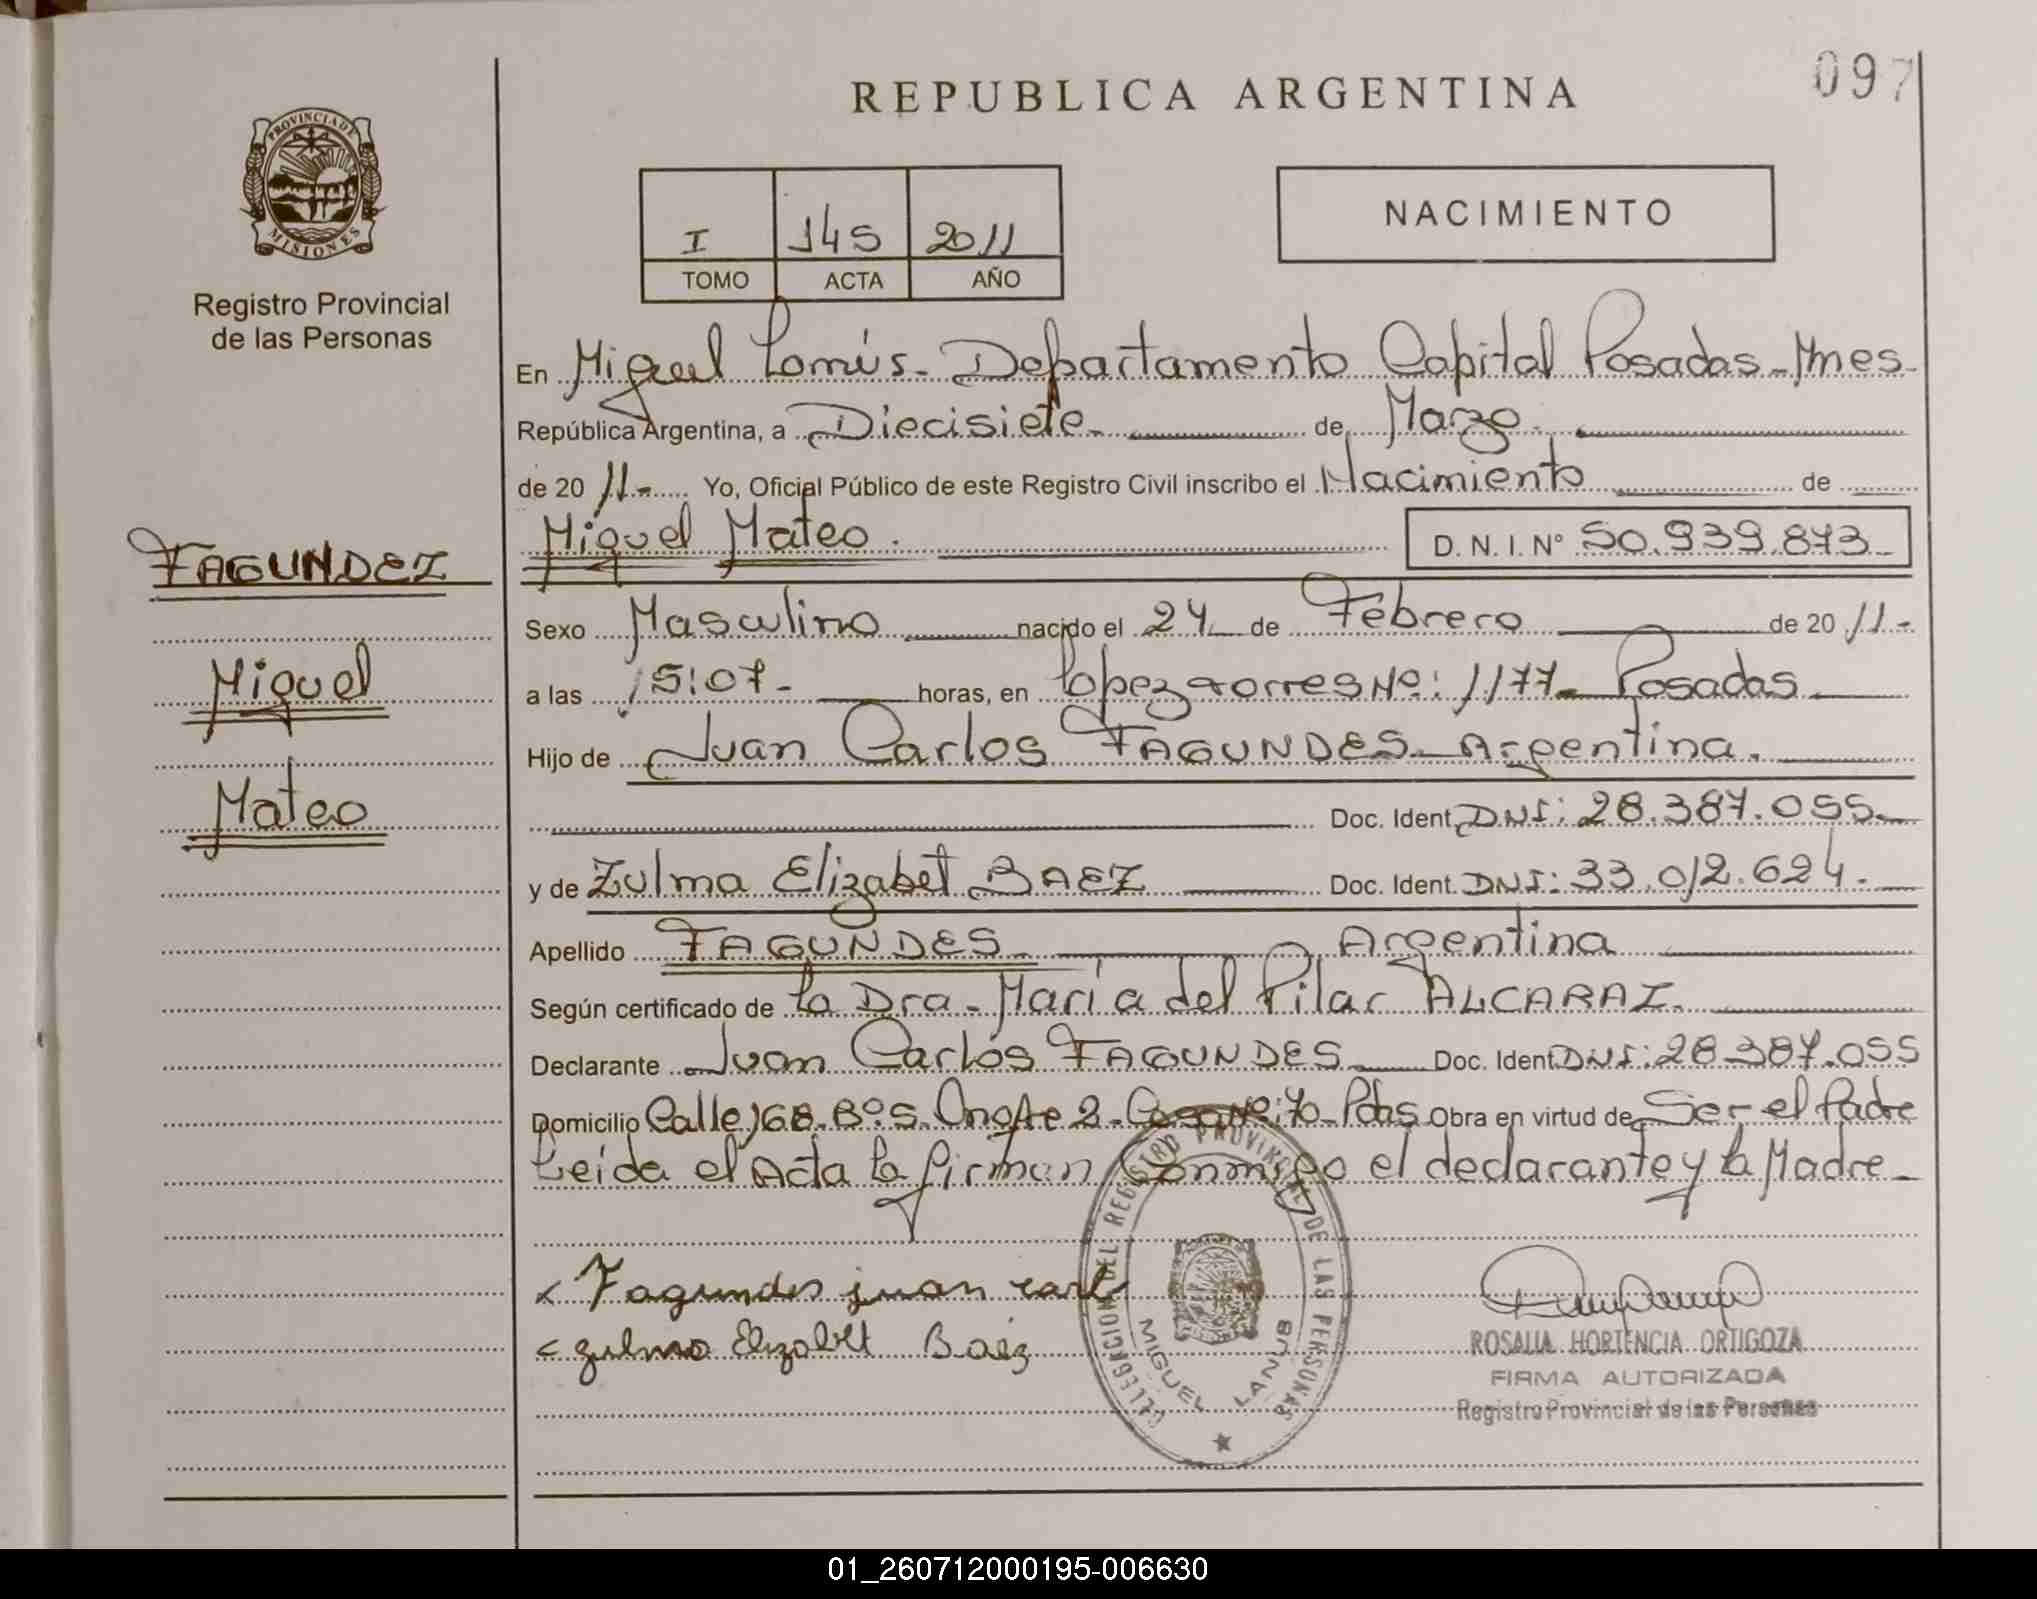 097
REPUBLICA ARGENTINA
PROVINCIA DE
MISIONES
Registro Provincial
de las Personas
I 145 2011
TOMO ACTA AÑO
NACIMIENTO
En Miguel Lanús - Departamento Capital Posadas - Mnes -
República Argentina, a Diecisiete - de Marzo -
de 20 11 - Yo, Oficial Público de este Registro Civil inscribo el Nacimiento de
Miguel Mateo . D. N. I. N° 50.939.873 -
FAGUNDEZ
Sexo Masculino nacido el 24 de Febrero de 20 11 -
Miguel
a las 15:07 - horas, en Lopez torres Nº: 1177 - Posadas
Hijo de Juan Carlos FAGUNDES - Argentina .
Mateo
Doc. Ident. DNI: 28.387.055 -
y de Zulma Elizabet BAEZ Doc. Ident. DNI: 33.012.624 .
Apellido FAGUNDES Argentina
Según certificado de La Dra - María del Pilar ALCARAZ .
Declarante Juan Carlos FAGUNDES Doc. Ident. DNI: 28.387.055
Domicilio Calle 168 - Bº S. Onofre 2 - Casa Nº: 70 - Pdas Obra en virtud de Ser el Padre
Leída el Acta la firman Conmigo el declarante y la Madre -
Fagundes juan carl
zulma Elizabet Baéz
DELEGACION DEL REGISTRO PROVINCIAL DE LAS PERSONAS
MIGUEL LANUS
ROSALIA HORTENCIA ORTIGOZA
FIRMA AUTORIZADA
Registro Provincial de las Personas
01_260712000195-006630